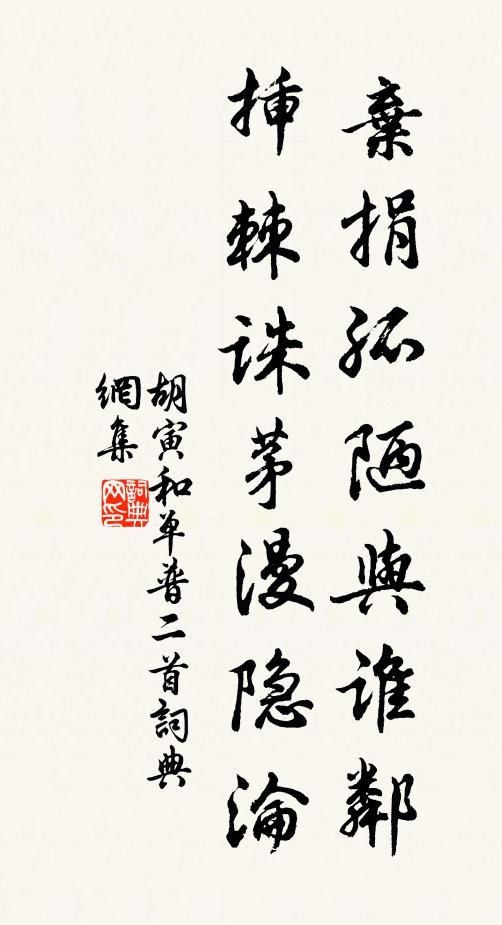 棄捐孤陋與誰鄰
挿棘誅茅漫隐淪
胡寅和單普二首詞典
網集
詞典網印